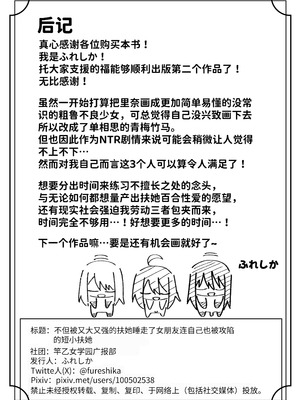 后记
真心感谢各位购买本书！
我是ふれしか！
托大家支援的福能够顺利出版第二个作品了！
无比感谢！
虽然一开始打算把里奈画成更加简单易懂的没常
识的粗鲁不良少女，可总觉得自己没兴致画下去
所以改成了单相思的青梅竹马。
但也因此作为NTR剧情来说可能会稍微让人觉得
不上不下…
然而对我自己而言这3个人可以算令人满足了！
想要分出时间来练习不擅长之处的念头，
与无论如何都想量产出扶她百合性爱的愿望，
还有现实社会强迫我劳动三者包夹而来，
时间完全不够用…！好想要更多的时间…！
下一个作品嘛…要是还有机会画就好了~
ふれしか
标题：不但被又大又强的扶她睡走了女朋友连自己也被攻陷
的短小扶她
社团：竿乙女学园广报部
发行人：ふれしか
Twitte人(X)：@fureshika
Pixiv：pixiv.net/users/100502538
禁止未经授权转载、复制、复印、于网络上（包括社交媒体）投放。